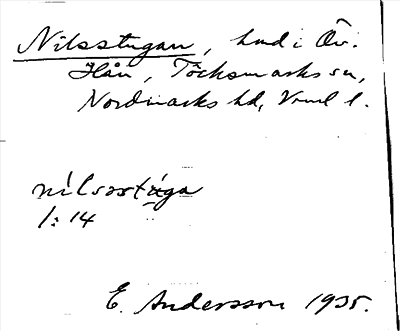 Nilsstugan, hmd i Öv.
Hån, Töcksmarks sn,
Nordmarks hd, Vrml l.
nilsstúga
1:14
E. Andersson 1935.